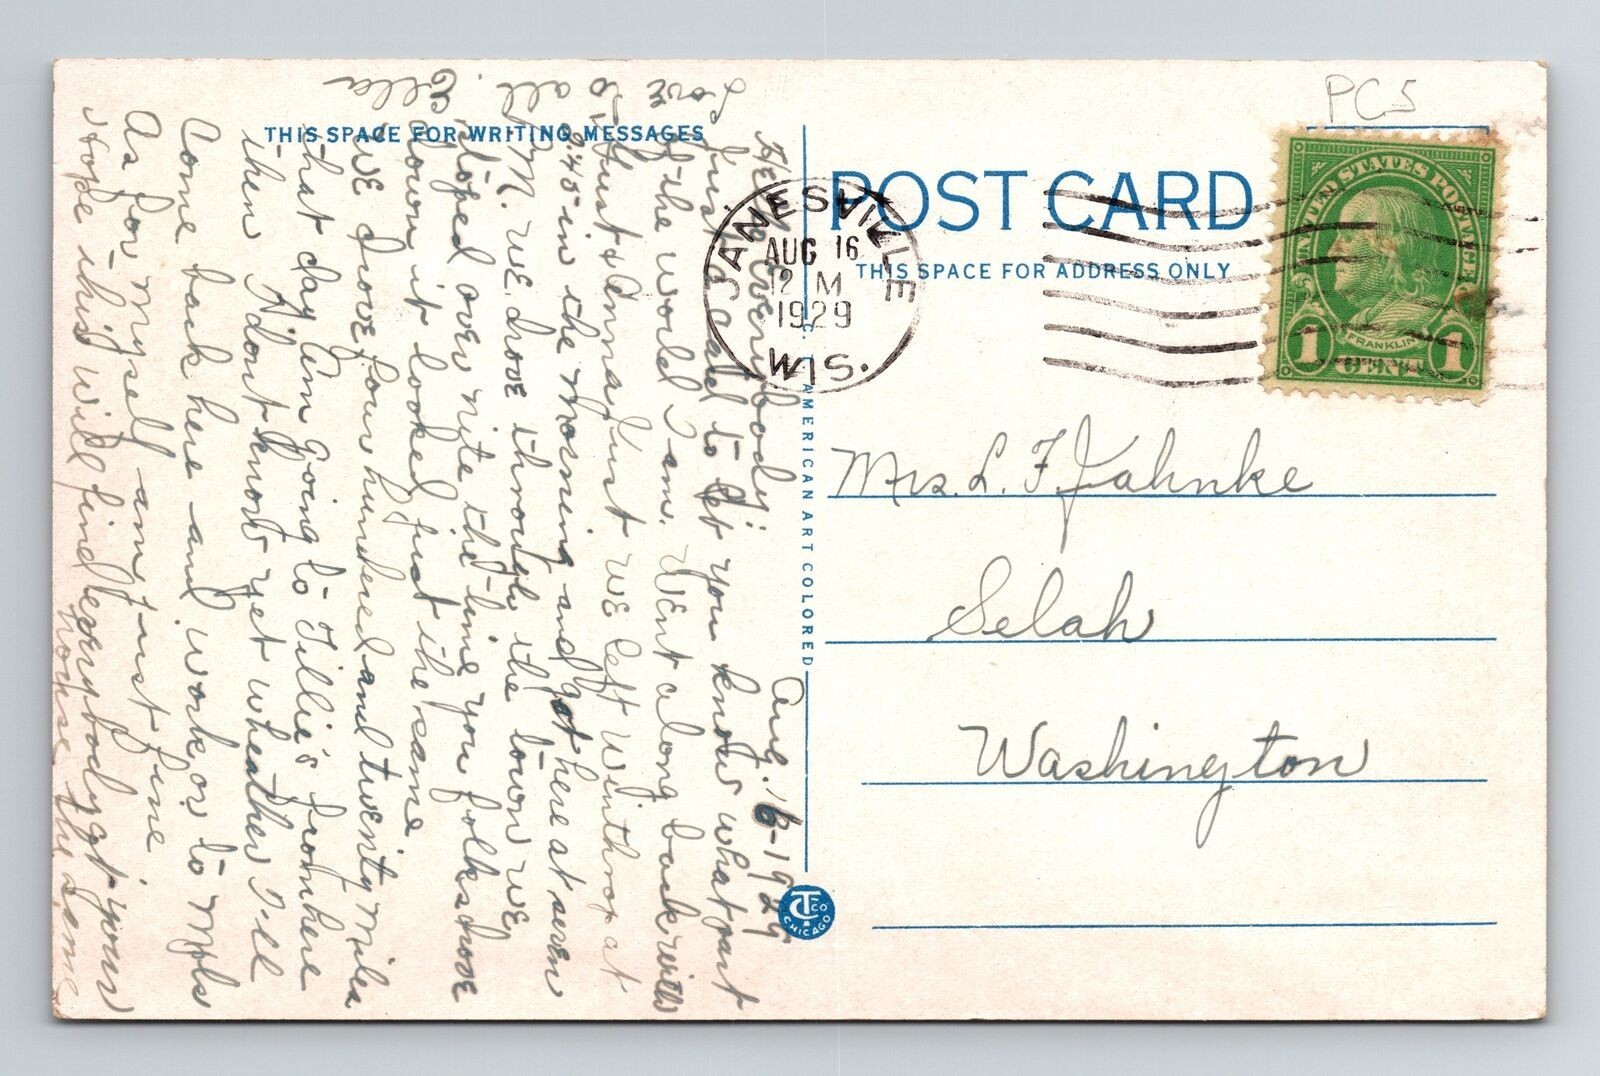 PC5
THIS SPACE FOR WRITING MESSAGES
POST CARD
THIS SPACE FOR ADDRESS ONLY
JANESVILLE
AUG 16
12 M
1929
WIS.
UNITED STATES POSTAGE
FRANKLIN
1 CENT 1
C. T. AMERICAN ART COLORED
C.T. CO. CHICAGO
Mrs. L. F. Jahnke
Selah
Washington
Aug. 16-1929
Hello Everybody:
Just a card to let you know what part
of the world I am. Went along back with
just we left Winthrop at
2.45 in the morning and got here at seven
P.M. We drove through the town we
stoped over nite the time you folks drove
down it looked just the same
We drove four hundred and twenty miles
that day. Am going to Tillie's from here
then I dont know yet wheather I'll
Come back here and work or to Mpls
As for myself am just fine
Hope this will find everybody at your
house the same
Love to all. Ella